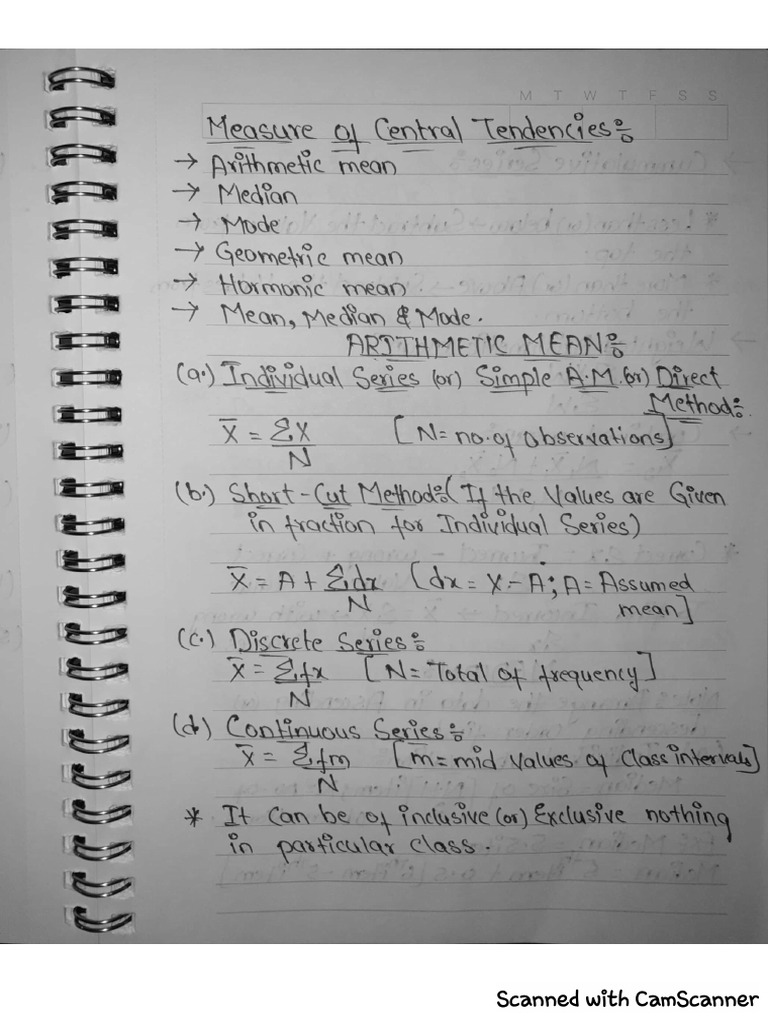 M T W T F S S
Measure of Central Tendencies:
→ Arithmetic mean
→ Median
→ Mode
→ Geometric mean
→ Hormonic mean
→ Mean, Median & Mode.
ARITHMETIC MEAN:
(a.) Individual Series (or) Simple A.M. (or) Direct
Method:
X̄ = ΣX/N [N = no. of observations]
(b.) Short-Cut Method: (If the Values are Given
in fraction for Individual Series)
X̄ = A + Σdx/N (dx = X - A; A = Assumed
mean]
(c.) Discrete Series:
X̄ = Σfx/N [N = Total of frequency]
(d.) Continuous Series:
X̄ = Σfm/N [m = mid values of Class intervals]
* It can be of inclusive (or) Exclusive nothing
in particular class.
Scanned with CamScanner